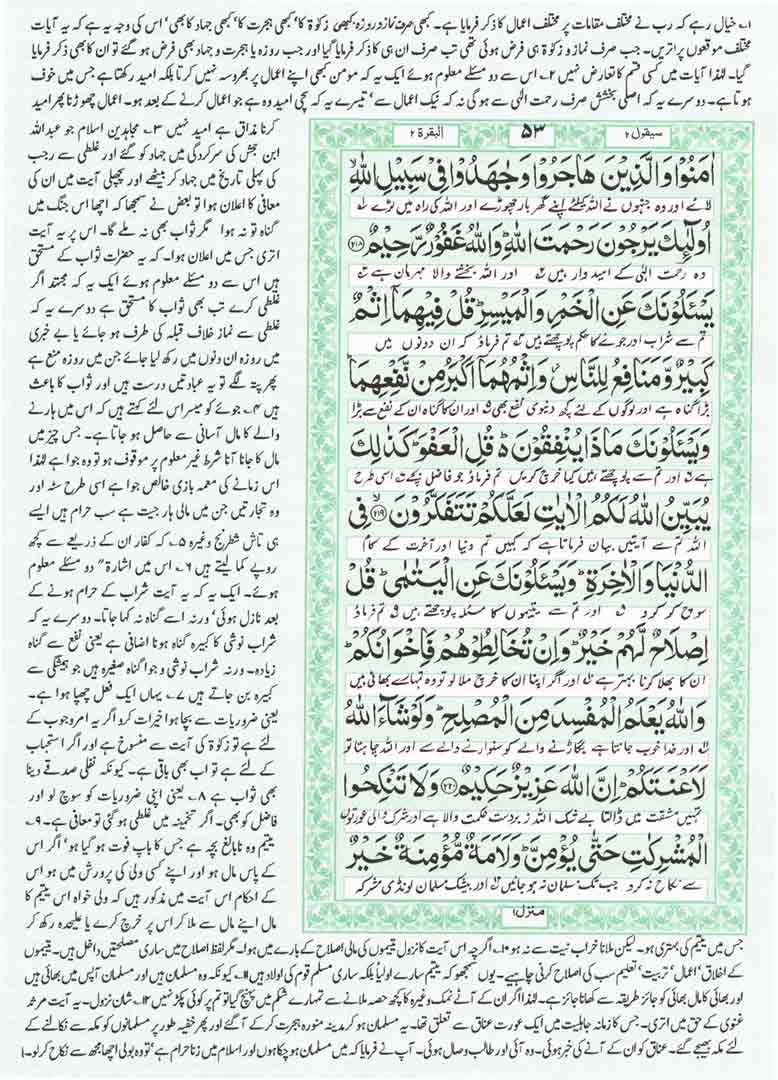 ۱۔ خیال رہے کہ رب نے مختلف مقامات پر مختلف اعمال کا ذکر فرمایا ہے۔ کبھی صرف نماز و روزہ، کبھی زکوٰۃ کا، کبھی ہجرت کا، کبھی جہاد کا بھی، اس کی وجہ یہ ہے کہ یہ آیات
مختلف موقعوں پر اتریں۔ جب صرف نماز و زکوٰۃ ہی فرض ہوئی تھی تب صرف ان ہی کا ذکر فرمایا گیا اور جب روزہ یا ہجرت و جہاد بھی فرض ہو گئے تو ان کا بھی ذکر فرمایا
گیا۔ لہٰذا آیات میں کسی قسم کا تعارض نہیں ۲۔ اس سے دو مسئلے معلوم ہوئے ایک یہ کہ مومن کبھی اپنے اعمال پر بھروسہ نہیں کرتا بلکہ امید رکھتا ہے جس میں خوف
ہوتا ہے۔ دوسرے یہ کہ اصلی بخشش صرف رحمت الٰہی سے ہو گی نہ کہ نیک اعمال سے، تیسرے یہ کہ سچی امید وہ ہے جو اعمال کرنے کے بعد ہو۔ اعمال چھوڑنا پھر امید
کرنا مذاق ہے امید نہیں ۳۔ مجاہدین اسلام جو عبداللہ
ابن جحش کی سرکردگی میں جہاد کو گئے اور غلطی سے رجب
کی پہلی تاریخ میں جہاد کر بیٹھے اور پچھلی آیت میں ان کی
معافی کا اعلان ہوا تو بعض نے سمجھا کہ اچھا اس جنگ میں
گناہ تو نہ ہوا مگر ثواب بھی نہ ملے گا۔ اس پر یہ آیت
اتری جس میں اعلان ہوا۔ کہ یہ حضرات ثواب کے مستحق
ہیں اس سے دو مسئلے معلوم ہوئے ایک یہ کہ مجتہد اگر
غلطی کرے تب بھی ثواب کا مستحق ہے دوسرے یہ کہ
غلطی سے نماز خلاف قبلہ کی طرف ہو جائے یا بے خبری
میں روزہ ان دنوں میں رکھ لیا جائے جن میں روزہ منع ہے
پھر پتہ لگے تو یہ عبادتیں درست ہیں اور ثواب کا باعث
ہیں ۴۔ جوئے کو میسر اس لئے کہتے ہیں کہ اس میں ہارنے
والے کا مال آسانی سے حاصل ہو جاتا ہے۔ جس چیز میں
مال کا جانا آنا شرط غیر معلوم پر موقوف ہو تو وہ جوا ہے لہٰذا
اس زمانے کی معمہ بازی خالص جوا ہے اسی طرح سٹہ اور
وہ تجارتیں جن میں مالی ہار جیت ہے سب حرام ہیں ایسے
ہی تاش شطرنج وغیرہ ۵۔ کہ کفار ان کے ذریعے سے کچھ
روپے کما لیتے ہیں ۶۔ اس میں اشارۃً دو مسئلے معلوم
ہوئے۔ ایک یہ کہ یہ آیت شراب کے حرام ہونے کے
بعد نازل ہوئی، ورنہ اسے گناہ نہ کہا جاتا۔ دوسرے یہ کہ
شراب نوشی کا کبیرہ گناہ ہونا اضافی ہے یعنی نفع سے گناہ
زیادہ۔ ورنہ شراب نوشی و جوا گناہ صغیرہ ہیں جو ہمیشگی سے
کبیرہ بن جاتے ہیں ۷۔ یہاں ایک فعل چھپا ہوا ہے۔
یعنی ضروریات سے بچا ہوا خیرات کرو اگر یہ امر وجوب کے
لئے ہے تو زکوٰۃ کی آیت سے منسوخ ہے اور اگر استحباب
کے لئے ہے تو اب بھی باقی ہے۔ کیونکہ نفلی صدقے دینا
بھی ثواب ہے ۸۔ یعنی اپنی ضروریات کو سوچ لو اور
فاضل کو بھی۔ اگر تخمینہ میں غلطی ہو گئی تو معافی ہے۔ ۹۔
یتیم وہ نابالغ بچہ ہے جس کا باپ فوت ہو گیا ہو، اگر اس
کے پاس مال ہو اور اپنے کسی ولی کی پرورش میں ہو اس
کے احکام اس آیت میں مذکور ہیں کہ ولی خواہ اس یتیم کا
مال اپنے مال سے ملا کر اس پر خرچ کرے یا علیحدہ رکھ کر
سیقول ۲
۵۳
البقرۃ ۲
اٰمَنُوْا وَالَّذِیْنَ هَاجَرُوْا وَجٰهَدُوْا فِیْ سَبِیْلِ اللّٰهِ ۙ
لائے اور وہ جنہوں نے اللہ کیلئے اپنے گھر بار چھوڑے اور اللہ کی راہ میں لڑے
اُولٰٓئِكَ یَرْجُوْنَ رَحْمَتَ اللّٰهِ وَاللّٰهُ غَفُوْرٌ رَّحِیْمٌ ۲۱۸
وہ رحمت الٰہی کے امیدوار ہیں اور اللہ بخشنے والا مہربان ہے
یَسْئَلُوْنَكَ عَنِ الْخَمْرِ وَالْمَیْسِرِ ؕ قُلْ فِیْهِمَاۤ اِثْمٌ
تم سے شراب اور جوئے کا حکم پوچھتے ہیں تم فرماؤ کہ ان دونوں میں
كَبِیْرٌ وَّمَنَافِعُ لِلنَّاسِ ؗ وَاِثْمُهُمَاۤ اَكْبَرُ مِنْ نَّفْعِهِمَا
بڑا گناہ ہے اور لوگوں کے لئے کچھ دنیوی نفع بھی اور ان کا گناہ ان کے نفع سے بڑا
وَیَسْئَلُوْنَكَ مَاذَا یُنْفِقُوْنَ ؕ قُلِ الْعَفْوَ ؕ كَذٰلِكَ
ہے اور تم سے پوچھتے ہیں کیا خرچ کریں تم فرماؤ جو فاضل بچے اسی طرح
یُبَیِّنُ اللّٰهُ لَكُمُ الْاٰیٰتِ لَعَلَّكُمْ تَتَفَكَّرُوْنَ ۲۱۹ فِی
اللہ تم سے آیتیں بیان فرماتا ہے کہ کہیں تم دنیا اور آخرت کے کام
الدُّنْیَا وَالْاٰخِرَةِ ؕ وَیَسْئَلُوْنَكَ عَنِ الْیَتٰمٰی ؕ قُلْ
سوچ کر کرو اور تم سے یتیموں کا مسئلہ پوچھتے ہیں تم فرماؤ
اِصْلَاحٌ لَّهُمْ خَیْرٌ ؕ وَاِنْ تُخَالِطُوْهُمْ فَاِخْوَانُكُمْ ؕ
ان کا بھلا کرنا بہتر ہے اور اگر اپنا ان کا خرچ ملا لو تو وہ تمہارے بھائی ہیں
وَاللّٰهُ یَعْلَمُ الْمُفْسِدَ مِنَ الْمُصْلِحِ ؕ وَلَوْ شَآءَ اللّٰهُ
اور خدا خوب جانتا ہے بگاڑنے والے کو سنوارنے والے سے اور اللہ چاہتا تو
لَاَعْنَتَكُمْ ؕ اِنَّ اللّٰهَ عَزِیْزٌ حَكِیْمٌ ۲۲۰ وَلَا تَنْكِحُوا
تمہیں مشقت میں ڈالتا بے شک اللہ زبردست حکمت والا ہے اور شرک والی عورتوں
الْمُشْرِكٰتِ حَتّٰی یُؤْمِنَّ ؕ وَلَاَمَةٌ مُّؤْمِنَةٌ خَیْرٌ
سے نکاح نہ کرو جب تک مسلمان نہ ہو جائیں اور بیشک مسلمان لونڈی مشرکہ
منزل ۱
جس میں یتیم کی بہتری ہو۔ لیکن ملانا خراب نیت سے نہ ہو ۱۰۔ اگرچہ اس آیت کا نزول یتیموں کی مالی اصلاح کے بارے میں ہوا۔ مگر لفظ اصلاح میں ساری مصلحتیں داخل ہیں۔ یتیموں
کے اخلاق، اعمال، تربیت، تعلیم سب کی اصلاح کرنی چاہیے۔ یوں سمجھو کہ یتیم سارے اولیا بلکہ ساری مسلم قوم کی اولاد ہیں ۱۱۔ کیونکہ وہ مسلمان ہیں اور مسلمان آپس میں بھائی ہیں
اور بھائی کا مال بھائی کو جائز طریقہ سے کھانا جائز ہے۔ لہٰذا اگر ان کے آٹے نمک وغیرہ کا کچھ حصہ ملانے سے تمہارے شکم میں پہنچ گیا تو تم پر کوئی پکڑ نہیں ۱۲۔ شان نزول۔ یہ آیت مرثد
غنوی کے حق میں اتری۔ جس کا زمانہ جاہلیت میں ایک عورت عناق سے تعلق تھا۔ یہ مسلمان ہو کر مدینہ منورہ ہجرت کر کے آ گئے اور پھر خفیہ طور پر مسلمانوں کو مکہ سے نکالنے کے
لئے مکہ بھیجے گئے۔ عناق کو ان کے آنے کی خبر ہوئی۔ وہ آئی اور طالب وصال ہوئی۔ آپ نے فرمایا کہ میں مسلمان ہو چکا ہوں اور اسلام میں زنا حرام ہے، تو وہ بولی اچھا مجھ سے نکاح کر لو۔